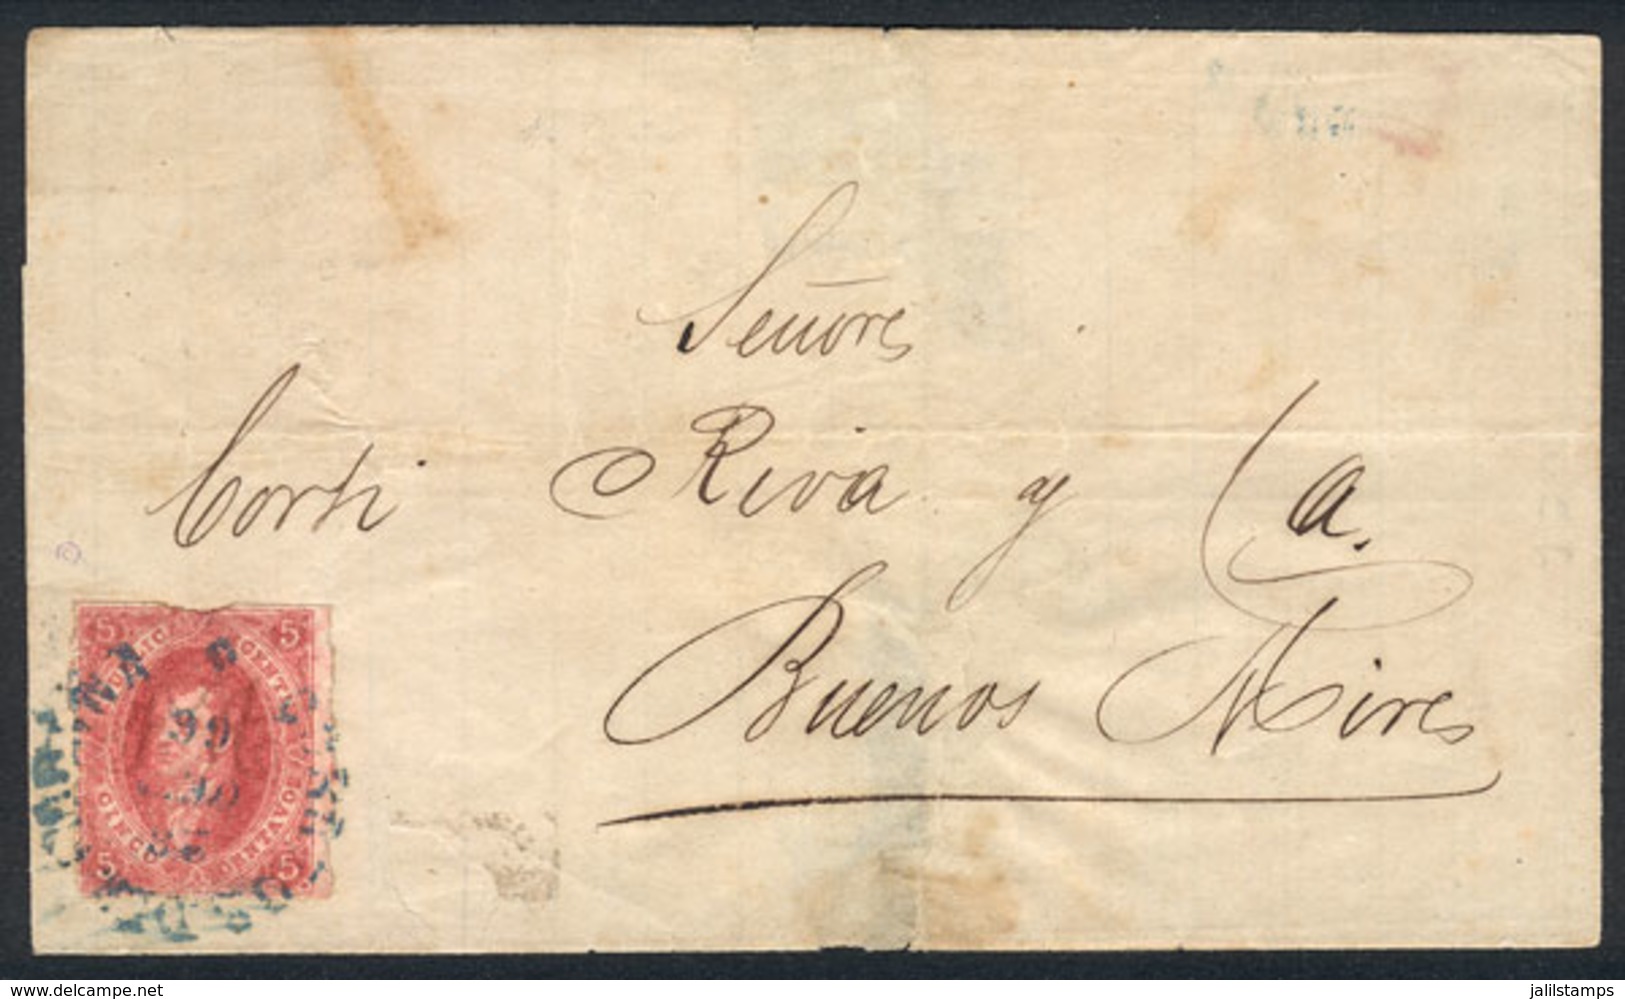 Señores
Corti Riva y Ca.
Buenos Aires
5 5
CINCO CENTAVOS
5 5
delcampe.net
jalilstamps